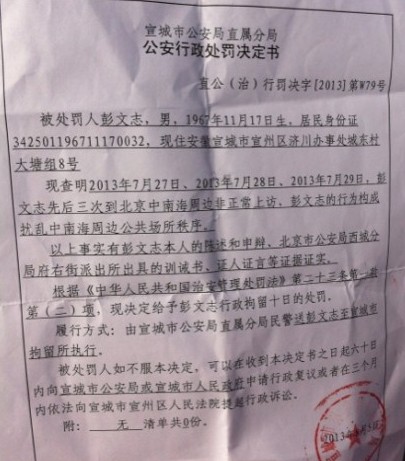 宣城市公安局直属分局
公安行政处罚决定书
直公（治）行罚决字[2013]第W79号
被处罚人彭文志，男，1967年11月17日生，居民身份证
342501196711170032，现住安徽宣城市宣州区济川办事处城东村
大塘组8号
现查明2013年7月27日、2013年7月28日、2013年7月29日，彭
文志先后三次到北京中南海周边非正常上访，彭文志的行为构成
扰乱中南海周边公共场所秩序。
以上事实有彭文志本人的陈述和申辩、北京市公安局西城分
局府右街派出所出具的训诫书、证人证言等证据证实。
根据《中华人民共和国治安管理处罚法》第二十三条第一款
第（二）项，现决定给予彭文志行政拘留十日的处罚。
履行方式：由宣城市公安局直属分局民警送彭文志至宣城市
拘留所执行。
被处罚人如不服本决定，可以在收到本决定书之日起六十日
内向宣城市公安局或宣城市人民政府申请行政复议或者在三个月
内依法向宣城市宣州区人民法院提起行政诉讼。
附：无 清单共0份。
2013年